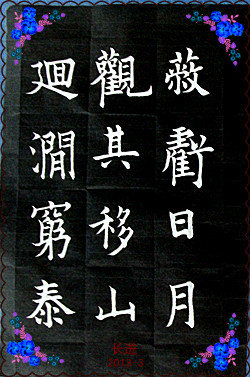 蔽虧日月
觀其移山
廻澗窮泰